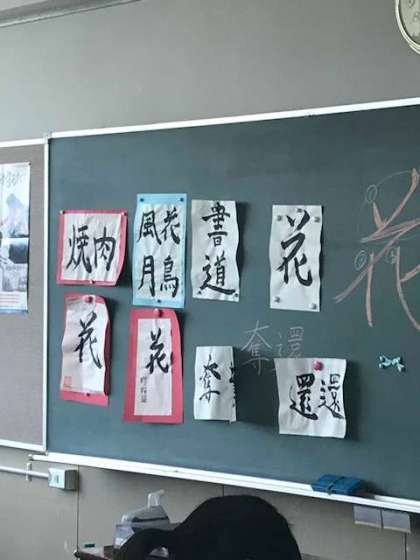 焼肉
花鳥
風月
書道
花
花
花
花
奪
奪還
還還